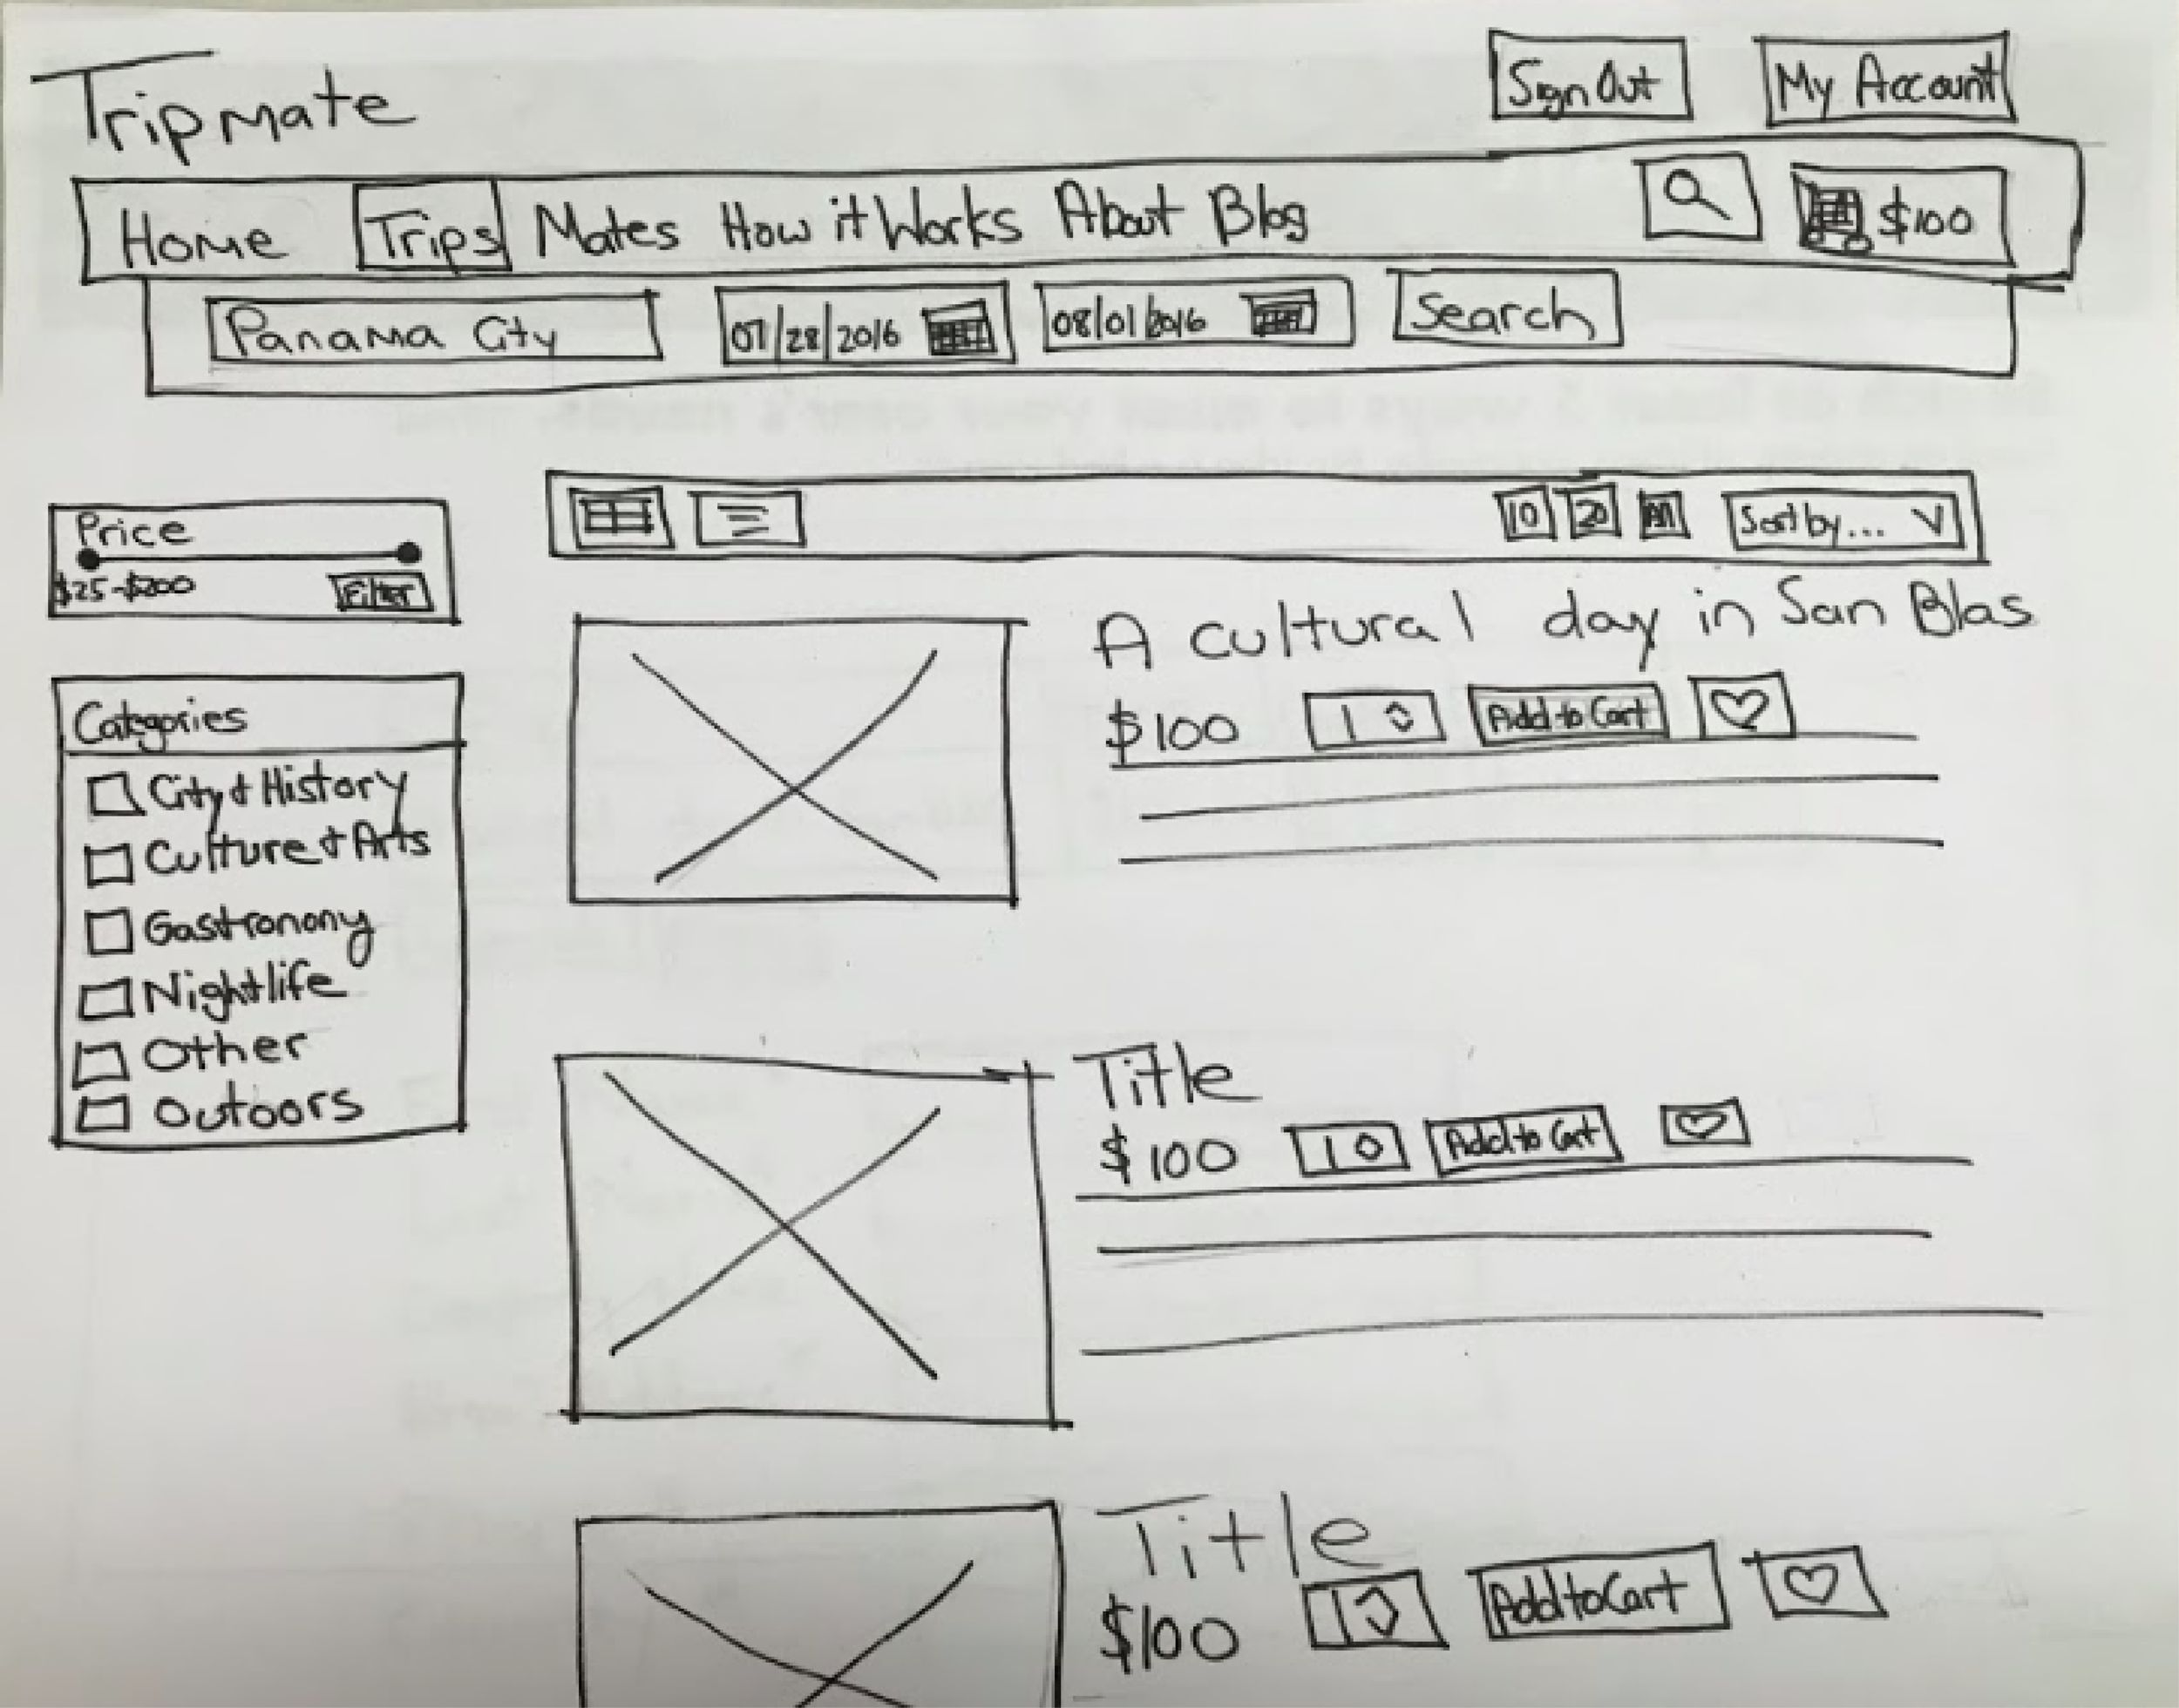 Tripmate
Sign Out
My Account
Home Trips Mates How it Works About Blog
$100
Panama City
07/28/2016
08/01/2016
Search
Price
$25-$200
Filter
10 20 All
Sort by...
Categories
City & History
Culture & Arts
Gastronony
Nightlife
Other
Outoors
A cultural day in San Blas
$100 1 Add to Cart
Title
$100 1 Add to Cart
Title
$100 1 Add to Cart